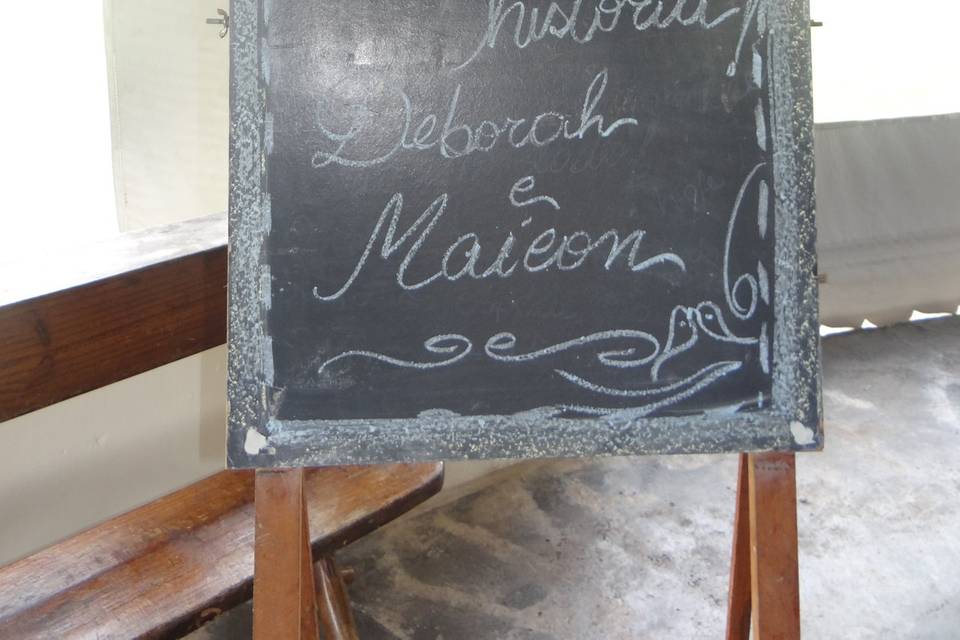 história
Deborah
e
Maicon